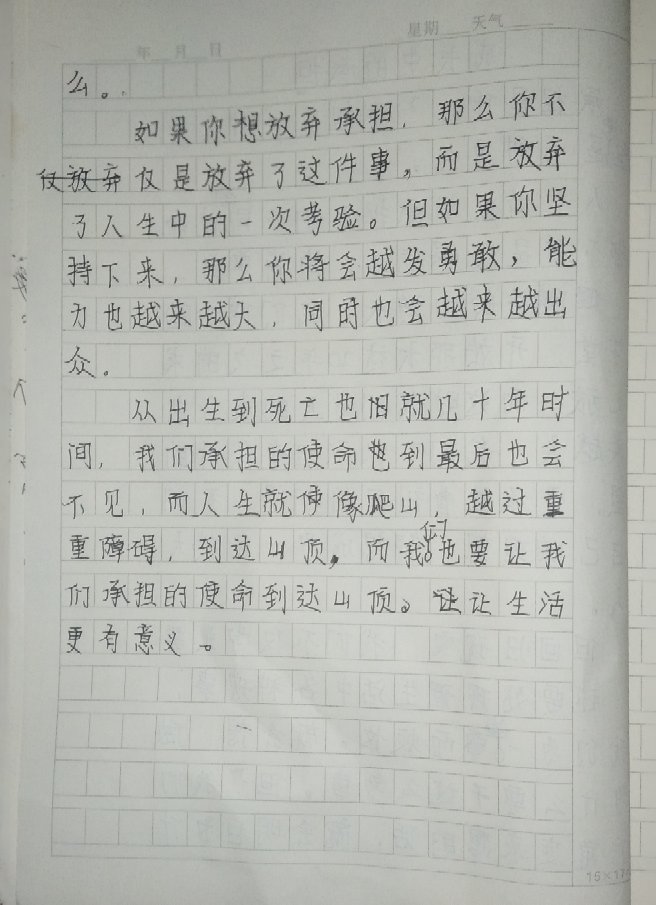 星期 天气
年 月 日
么。
如果你想放弃承担，那么你不
仅放弃仅是放弃了这件事，而是放弃
了人生中的一次考验。但如果你坚
持下来，那么你将会越发勇敢，能
力也越来越大，同时也会越来越出
众。
从出生到死亡也旧就几十年时
间，我们承担的使命也到最后也会
不见，而人生就使像爬山，越过重
重障碍，到达山顶，而我们也要让我
们承担的使命到达山顶。让让生活
更有意义。